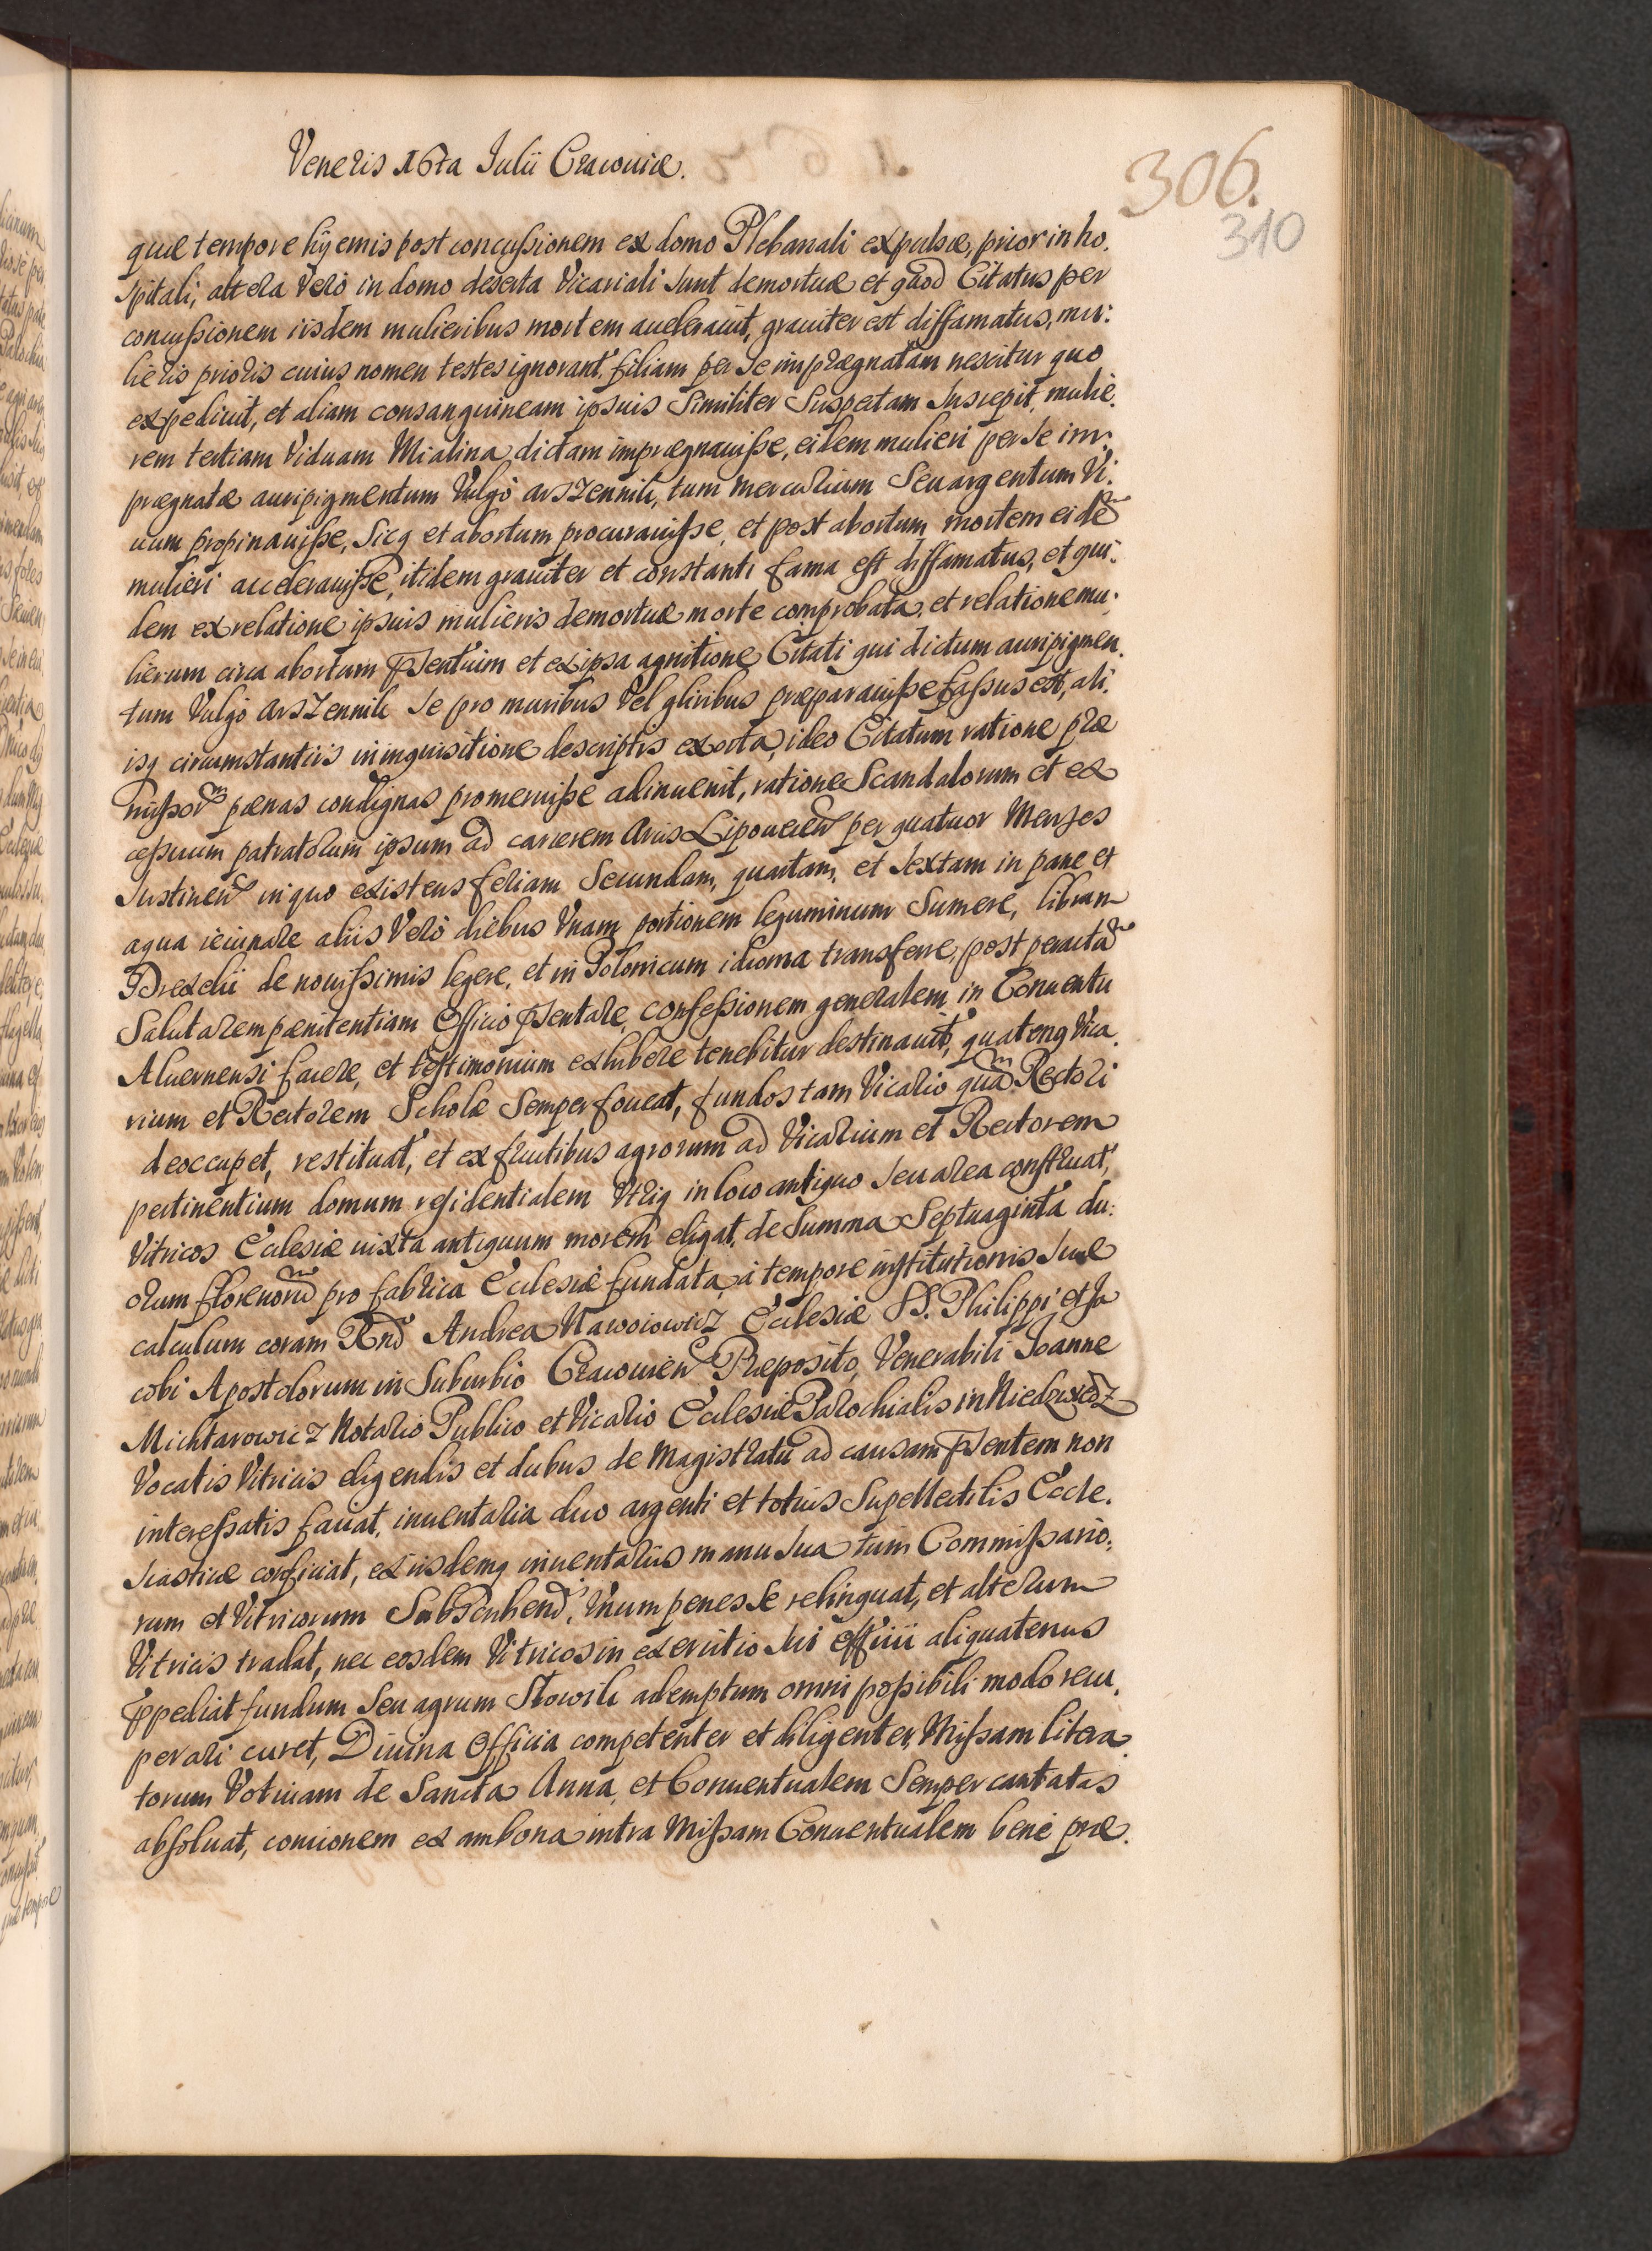 Veneris 16ta Julii Cracoviæ.
306.
310
quæ tempore hyemis post concussionem ex domo Plebanali expulsæ, prior in ho,
spitali, altera Vero in domo deserta Vicariali sunt demortuæ et quod Citatus per
concussionem iisdem mulieribus mortem accelerauit, grauiter est diffamatus, mu:
lieris prioris cuius nomen testes ignorant. filiam per se imprægnatam nescitur quo
expediuit, et aliam consanguineam ipsius Similiter Suspectam Suscepit, mulie,
rem tertiam Viduam Mialina dictam imprægnauisse, eidem mulieri per se im:
prægnatæ auripigmentum Vulgo arszennik, tum mercurium Seu argentum Vi:
uum propinauisse, Sicq et abortum procurauisse, et post abortum mortem eidē
mulieri accelerauisse, itidem grauiter et constanti fama est diffamatus, et qui:
dem ex relatione ipsius mulieris demortuæ morte comprobata, et relatione mu:
lierum circa abortum pſentium et ex ipsa agnitione Citati qui dictum auripigmen,
tum Vulgo arszennik se pro muribus Vel gliribus præparauisse fassus est, ali,
isq circumstantiis in inquisitione descriptis exorta, ideo Citatum ratione præ
missorū pænas condignas promeruisse adinuenit, ratione Scandalorum et ex
cessuum patratorum ipsum ad carcerem Arcis Lipouecen per quatuor Menses
Sustinen in quo existens feriam Secundam, quartam, et Sextam in pane et
aqua ieiunare aliis Vero diebus Vnam portionem leguminum Sumere, librum
Drexelii de nouissimis legere, et in Polonicum idioma transferre, post peractā
Salutarem pænitentiam Officio pſentare, confessionem generalem in Conuentu
Aluernensi facere, et testimonium exhibere tenebitur destinauit, quatenq Vica,
rium et Rectorem Scholæ Semper foueat, fundos tam Vicario quā Rectori
deoccupet, restituat, et ex fructibus agrorum ad Vicarium et Rectorem
pertinentium domum residentialem Vtriq in loco antiquo seu area construat,
Vitricos Ecclesiæ iuxta antiquum morem eligat, de Summa Septuaginta du:
orum florenorū pro fabrica Ecclesiæ fundata, a tempore institutionis suæ
calculum coram Rnd Andrea Nawoiowicz Ecclesiæ SS. Philippi et Ja
cobi Apostolorum in Suburbio Cracouien Præposito, Venerabili Joanne
Michtarowicz Notario Publico et Vicario Ecclesiæ Parochialis in Niedzwiedz
Vocatis Vitricis eligendis et dubus de Magistratu ad causam pſentem non
interessatis faciat, inuentaria duo argenti et totius Supellectilis Eccle,
siasticæ conficiat, ex iisdemq inuentariis manu sua tum Commissario,
rum et Vitricorum Subscribend, Vnum penes se relinquat, et alterum
Vitricis tradat, nec eosdem Vitricos in exercitio sui Officii aliquatenus
Impediat fundum Seu agrum Stowik ademptum omni possibili modo recu,
perari curet, Diuina Officia competenter et diligenter, Missam litera,
torum Votiuam de Sancta Anna, et Conuentualem Semper cantatas
absoluat, concionem ex ambona intra Missam Conuentualem bene præ.